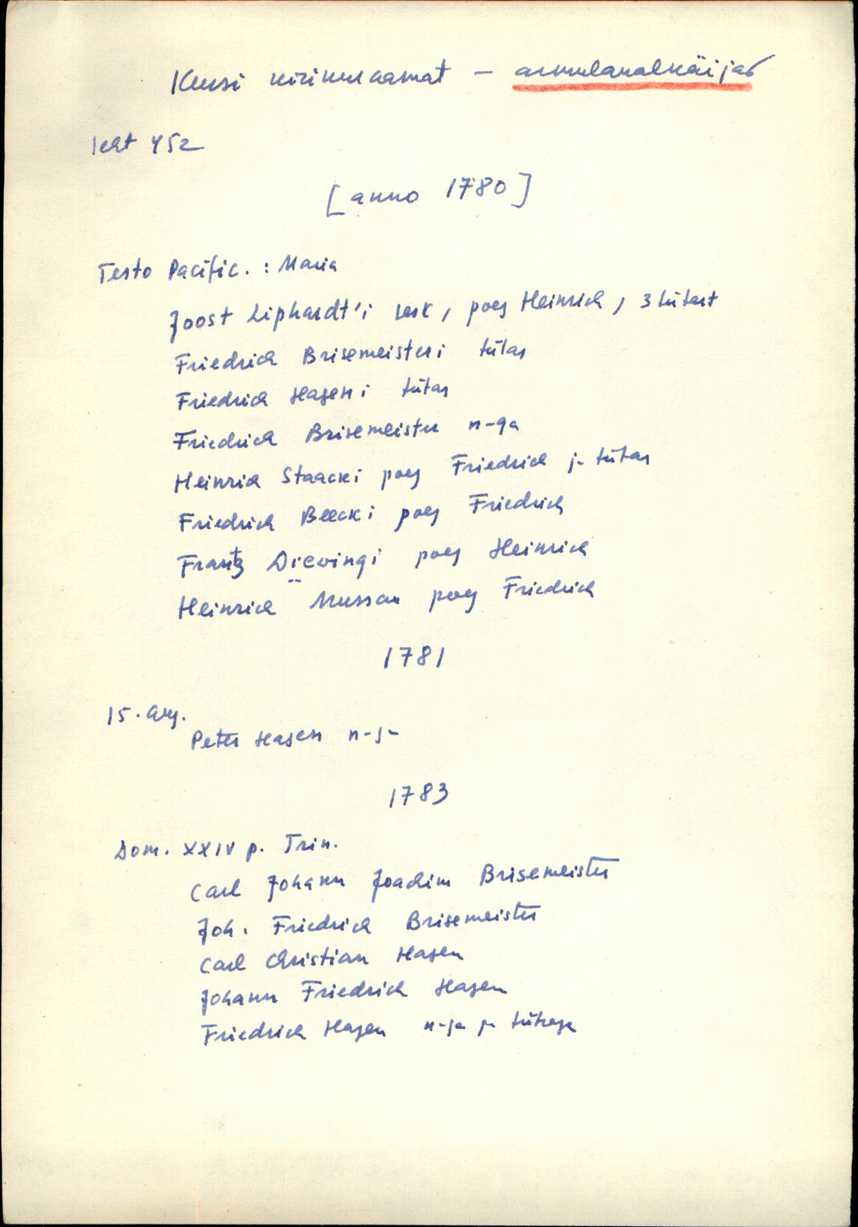 Kursi kirikuraamat – armulaualkäijad
leht 452
[anno 1780]
Festo Pacific. : Maria
Joost Liphardt'i lesk, poeg Heinrich, 3 tütart
Friedrich Brisemeisteri tütar
Friedrich Hageni tütar
Friedrich Brisemeister n-ga
Heinrich Staacki poeg Friedrich j- tütar
Friedrich Beecki poeg Friedrich
Frantz Dievingi poeg Heinrich
Heinrich Mussau poeg Friedrich
1781
15. Aug.
Peter Hagen n-j-
1783
Dom. XXIV p. Trin.
Carl Johann Joachim Brisemeister
Joh. Friedrich Brisemeister
Carl Christian Hagen
Johann Friedrich Hagen
Friedrich Hagen n-ja j- tütrega